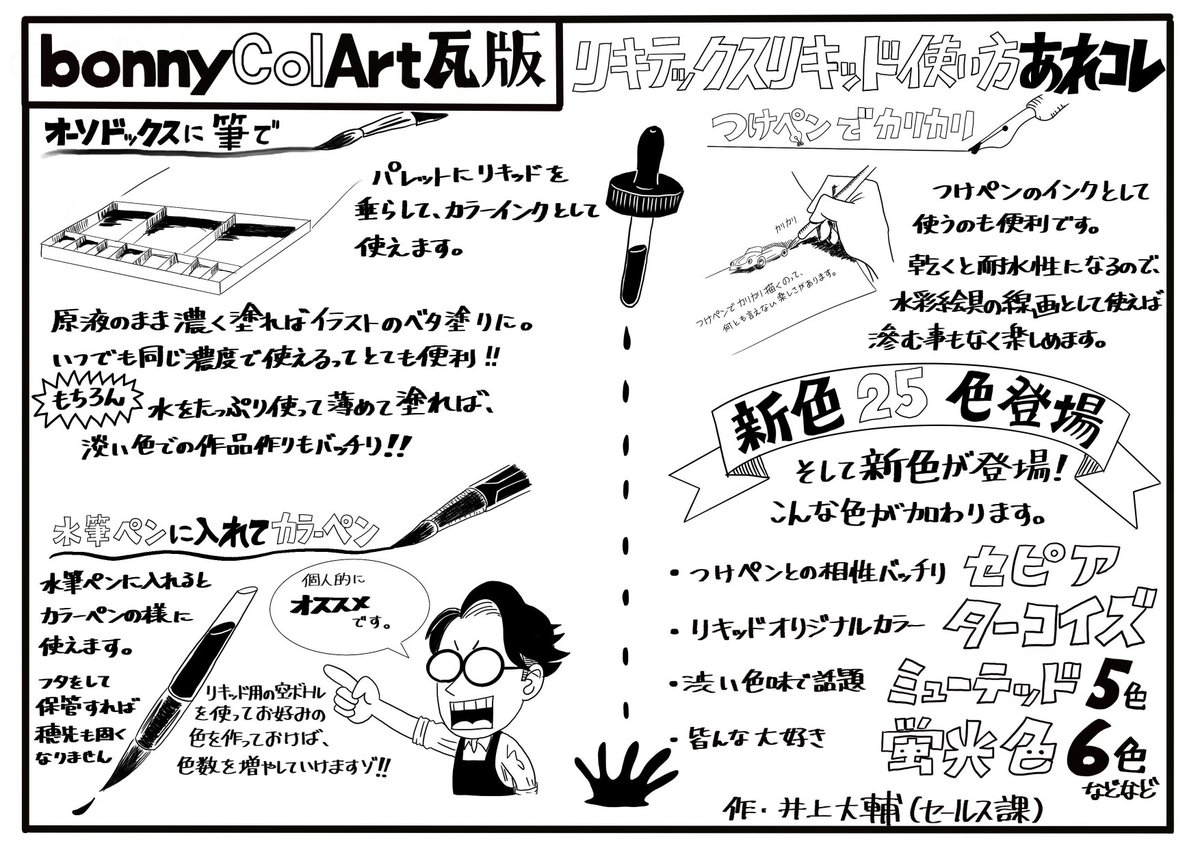 bonnyColArt瓦版
リキテックスリキッド使い方あれコレ
オーソドックスに筆で
パレットにリキッドを
垂らして、カラーインクとして
使えます。
原液のまま濃く塗ればイラストのベタ塗りに。
いつでも同じ濃度で使えるってとても便利!!
もちろん
水をたっぷり使って薄めて塗れば、
淡い色での作品作りもバッチリ!!
水筆ペンに入れてカラーペン
水筆ペンに入れると
カラーペンの様に
使えます。
フタをして
保管すれば
穂先も固く
なりません
個人的に
オススメ
です。
リキッド用の空ボトル
を使ってお好みの
色を作っておけば、
色数を増やしていけますゾ!!
つけペンでカリカリ
カリカリ
つけペンでカリカリ描くのって、
何とも言えない楽しさがあります。
つけペンのインクとして
使うのも便利です。
乾くと耐水性になるので、
水彩絵具の線画として使えば
滲む事もなく楽しめます。
新色25色登場
そして新色が登場!
こんな色が加わります。
・つけペンとの相性バッチリ セピア
・リキッドオリジナルカラー ターコイズ
・渋い色味で話題 ミューテッド5色
・皆んな大好き 蛍光色6色
などなど
作・井上大輔(セールス課)